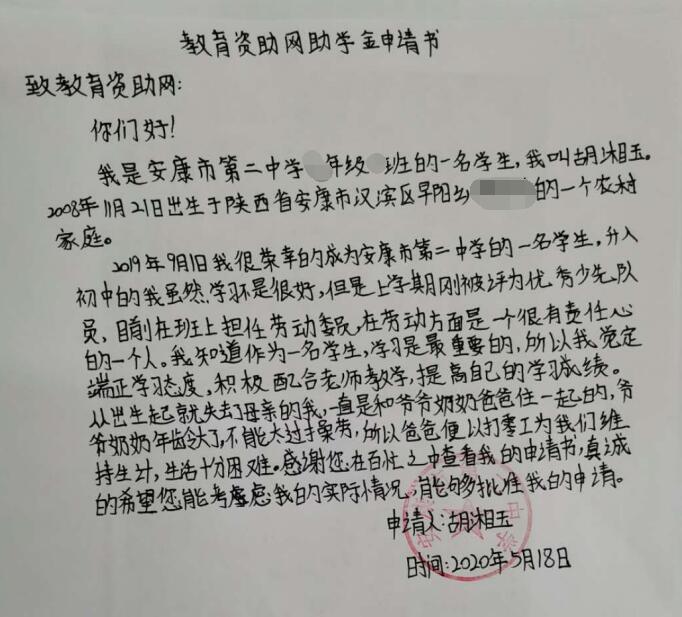 教育资助网助学金申请书
致教育资助网:
你们好!
我是安康市第二中学 年级 班的一名学生,我叫胡湘玉。
2008年11月21日出生于陕西省安康市汉滨区早阳 的一个农村
家庭。
2019年9月1日我很荣幸的成为安康市第二中学的一名学生,升入
初中的我虽然学习不是很好,但是上学期刚被评为优秀少先队
员,目前在班上担任劳动委员,在劳动方面是一个很有责任心
的一个人。我知道作为一名学生,学习是最重要的,所以我觉定
端正学习态度,积极配合老师教学,提高自己的学习成绩。
从出生起就失去了母亲的我,一直是和爷爷奶奶爸爸住一起的,爷
爷奶奶年龄大了,不能太过操劳,所以爸爸便以打零工为我们维
持生计,生活十分困难。感谢您在百忙之中查看我的申请书,真诚
的希望您能考虑我的实际情况,能够批准我的申请。
申请人:胡湘玉
时间:2020年5月18日